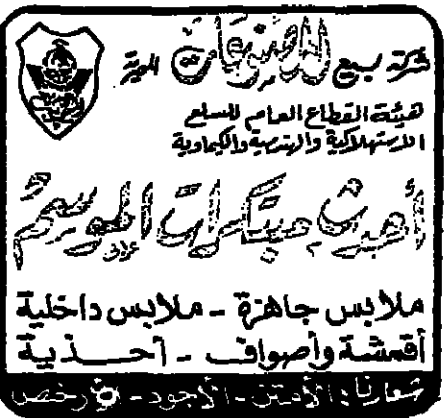 شركة بيع المصنوعات المصرية
هيئة القطاع العام للسلع
الاستهلاكية والهندسية والكيماوية
أحدث مبتكرات الموسم
ملابس جاهزة - ملابس داخلية
أقمشة وأصواف - أحذية
شعارنا: الأمتن - الأجود - الأرخص